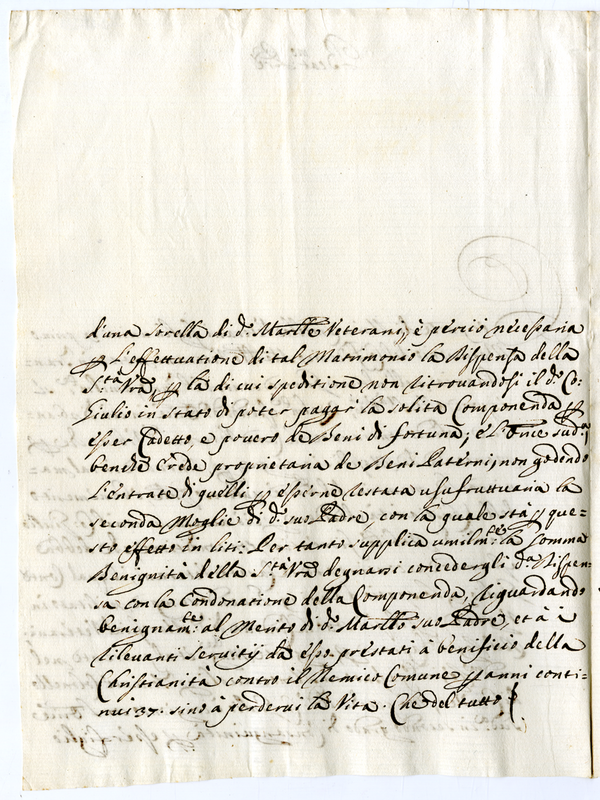 d'una sorella di d.º Marllo Veterani, è perciò necessaria
p l'effettuatione di tal Matrimonio la Dispensa della
S.tà Vrã, p la di cui speditione non ritrovandosi il d.º Co:
Giulio in stato di poter pagar la solita Componenda p
esser Cadetto, e povero de Beni di fortuna; e sud.ª
benche Crede proprietaria de Beni Paterni, non godendo
l'entrate di quelli p esserne restata usufruttuaria la
seconda Moglie di d.º suo Padre, con la quale stà p que=
sto effetto in liti: Per tanto supplica umilm.te la somma
Benignità della S.tà Vrã degnarsi concedergli d.ª Dispen=
sa con la Condonatione della Componenda, riguardando
benignam.te al Merito di d.º Marllo suo Padre, et à i
rilevanti servitij da esso prestati à benificio della
Christianità contro il Nemico Comune p anni conti=
nui 37. sino à perdervi la Vita. Che del tutto